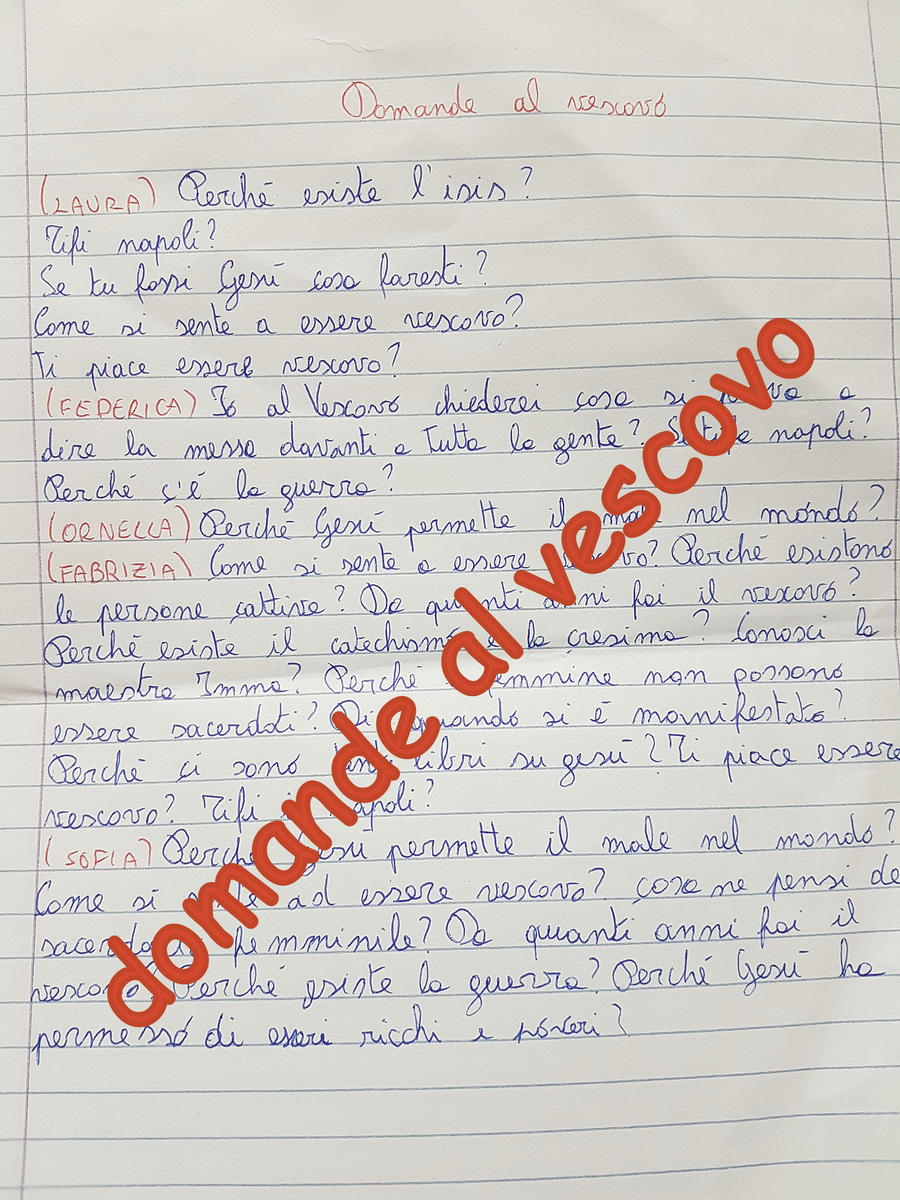 Domande al vescovo
(LAURA) Perché esiste l'isis?
Tifi napoli?
Se tu fossi Gesù cosa faresti?
Come si sente a essere vescovo?
Ti piace essere vescovo?
(FEDERICA) Io al Vescovo chiederei cosa si a
dire la messa davanti a tutta la gente? napoli?
Perché c'é la guerra?
(ORNELLA) Perché Gesù permette il male nel mondo?
(FABRIZIA) Come si sente a essere vescovo? Perché esistono
le persone cattive? Da quanti anni fai il vescovo?
Perché esiste il catechismo e la cresima? Conosci la
maestra Imma? Perché femmine non possono
essere sacerdoti? Di quando si é manifestato?
Perché ci sono tanti libri su gesù? Ti piace essere
vescovo? Tifi il napoli?
(SOFIA) Perché Gesù permette il male nel mondo?
Come si sente ad essere vescovo? cosa ne pensi del
femminile? Da quanti anni fai il
vescovo? Perché esiste la guerra? Perché Gesù ha
permesso di esseri ricchi e poveri?
domande al vescovo